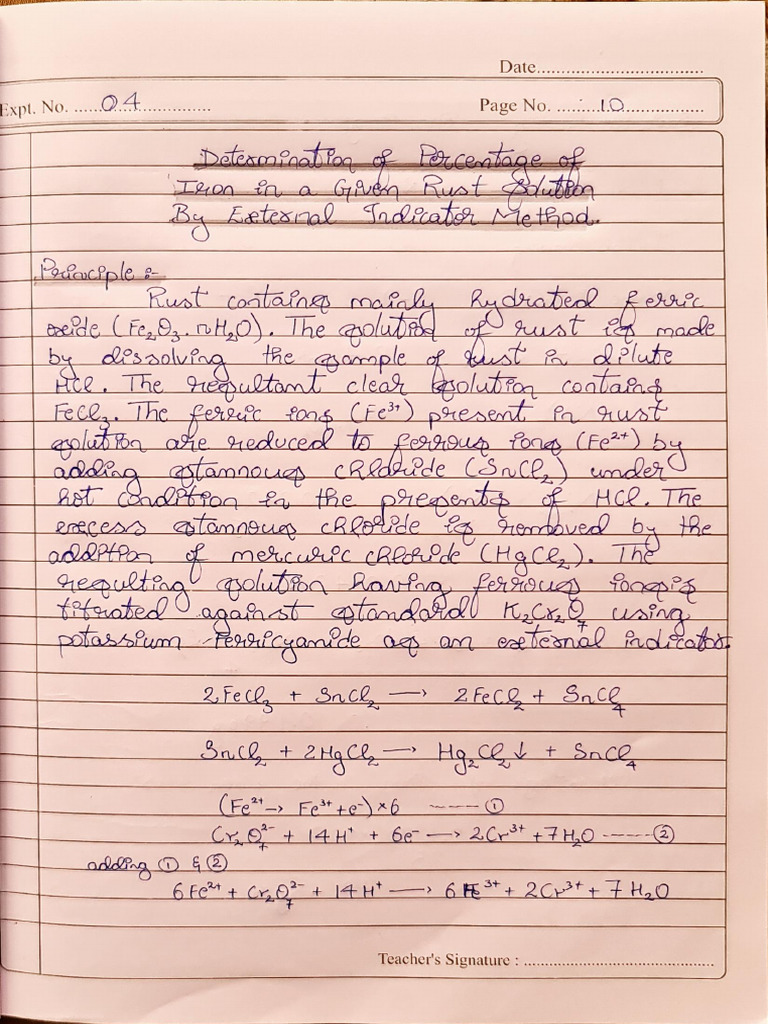 Date................................
Expt. No. ......04..............
Page No. ......10................
Determination of Percentage of
Iron in a Given Rust Solution
By External Indicator Method.
Principle :-
Rust contains mainly hydrated ferric
oxide (Fe₂O₃.nH₂O). The solution of rust is made
by dissolving the sample of rust in dilute
HCl. The resultant clear solution contains
FeCl₃. The ferric ions (Fe³⁺) present in rust
solution are reduced to ferrous ions (Fe²⁺) by
adding stannous chloride (SnCl₂) under
hot condition in the presents of HCl. The
excess stannous chloride is romoved by the
addition of mercuric chloride (HgCl₂). The
resulting solution having ferrous ions is
titrated against standard K₂Cr₂O₇ using
potassium Ferricyanide as an external indicator.
2FeCl₃ + SnCl₂ → 2FeCl₂ + SnCl₄
SnCl₂ + 2HgCl₂ → Hg₂Cl₂↓ + SnCl₄
(Fe²⁺ → Fe³⁺ + e⁻) × 6 ------ ①
Cr₂O₇²⁻ + 14H⁺ + 6e⁻ → 2Cr³⁺ + 7H₂O ------ ②
adding ① & ②
6Fe²⁺ + Cr₂O₇²⁻ + 14H⁺ → 6Fe³⁺ + 2Cr³⁺ + 7H₂O
Teacher's Signature : ........................................